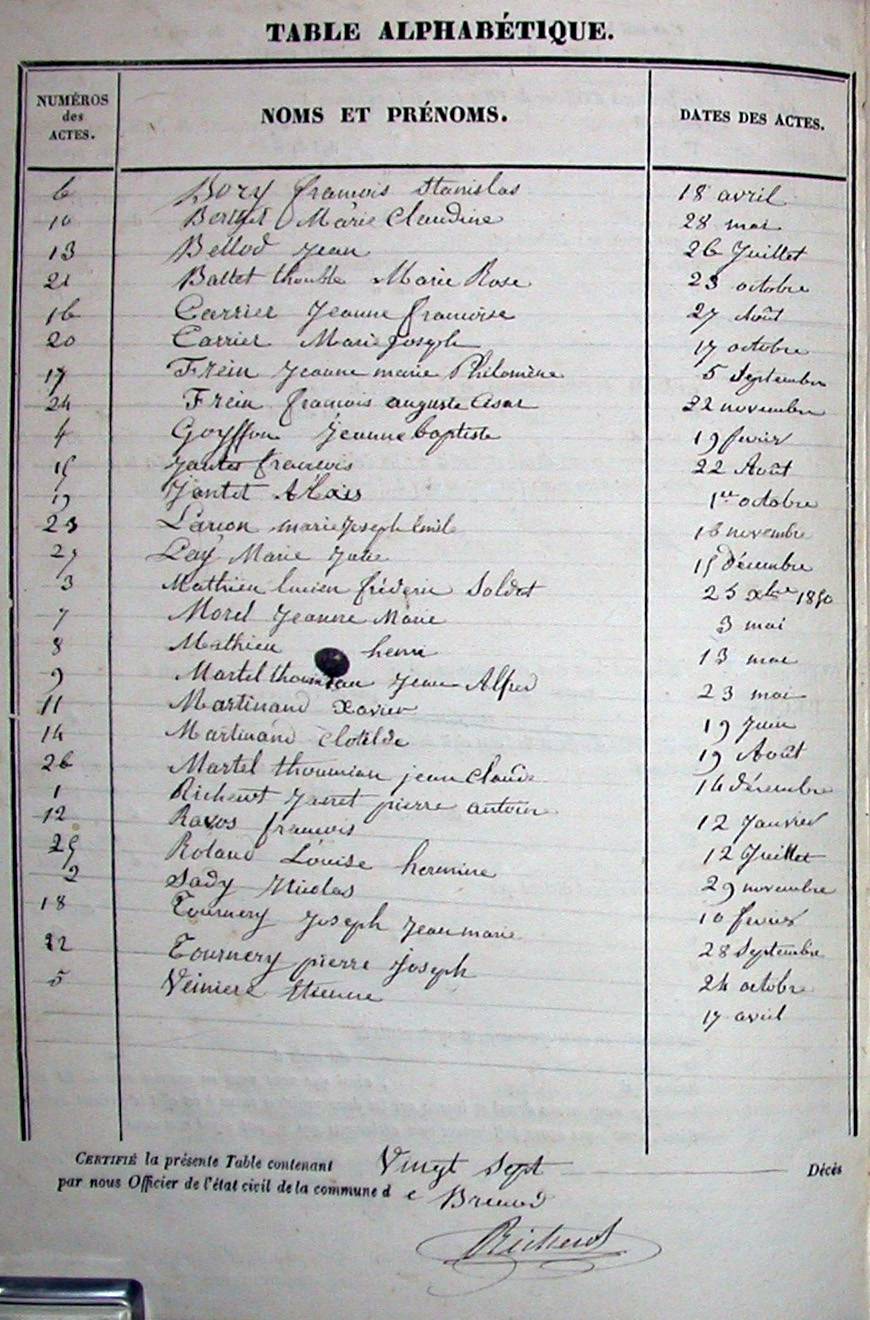 TABLE ALPHABÉTIQUE.
NUMÉROS des ACTES. NOMS ET PRÉNOMS. DATES DES ACTES.
6 Bory francois Stanislas 18 avril
10 Marie Claudine 28 mai
13 Bellod Jean 26 Juillet
21 Ballet thouble Marie Rose 23 octobre
16 Carrier Jeanne francoise 27 Août
20 Carrier Marie Joseph 17 octobre
17 Frein Jeanne marie Philomène 5 Septembre
24 Frein francois auguste César 22 novembre
4 Goyffon Jeanne baptiste 19 fevrier
15 francois 22 Août
19 Jantet Alexis 1er octobre
23 marie Joseph Emile 16 novembre
27 Lay Marie Julie 15 décembre
3 Mathieu lucien fréderic Soldat 25 xbre 1850
7 Morel Jeanne Marie 3 mai
8 Mathieu henri 13 mai
9 Martel thoumian Jean Alfred 23 mai
11 Martinand Xavier 19 Juin
14 Martinand Clotilde 19 Août
26 Martel thoumian jean claude 14 décembre
1 Richerot Janet pierre antoine 12 Janvier
12 Ravos francois 12 Juillet
25 Roland Louise hermine 29 novembre
2 Sady Nicolas 10 fevrier
18 Tournery Joseph Jean marie 28 Septembre
22 Tournery pierre Joseph 24 octobre
5 Veiniere Etienne 17 avril
CERTIFIÉ la présente Table contenant Vingt Sept Décès
par nous Officier de l'état civil de la commune d e Brenod